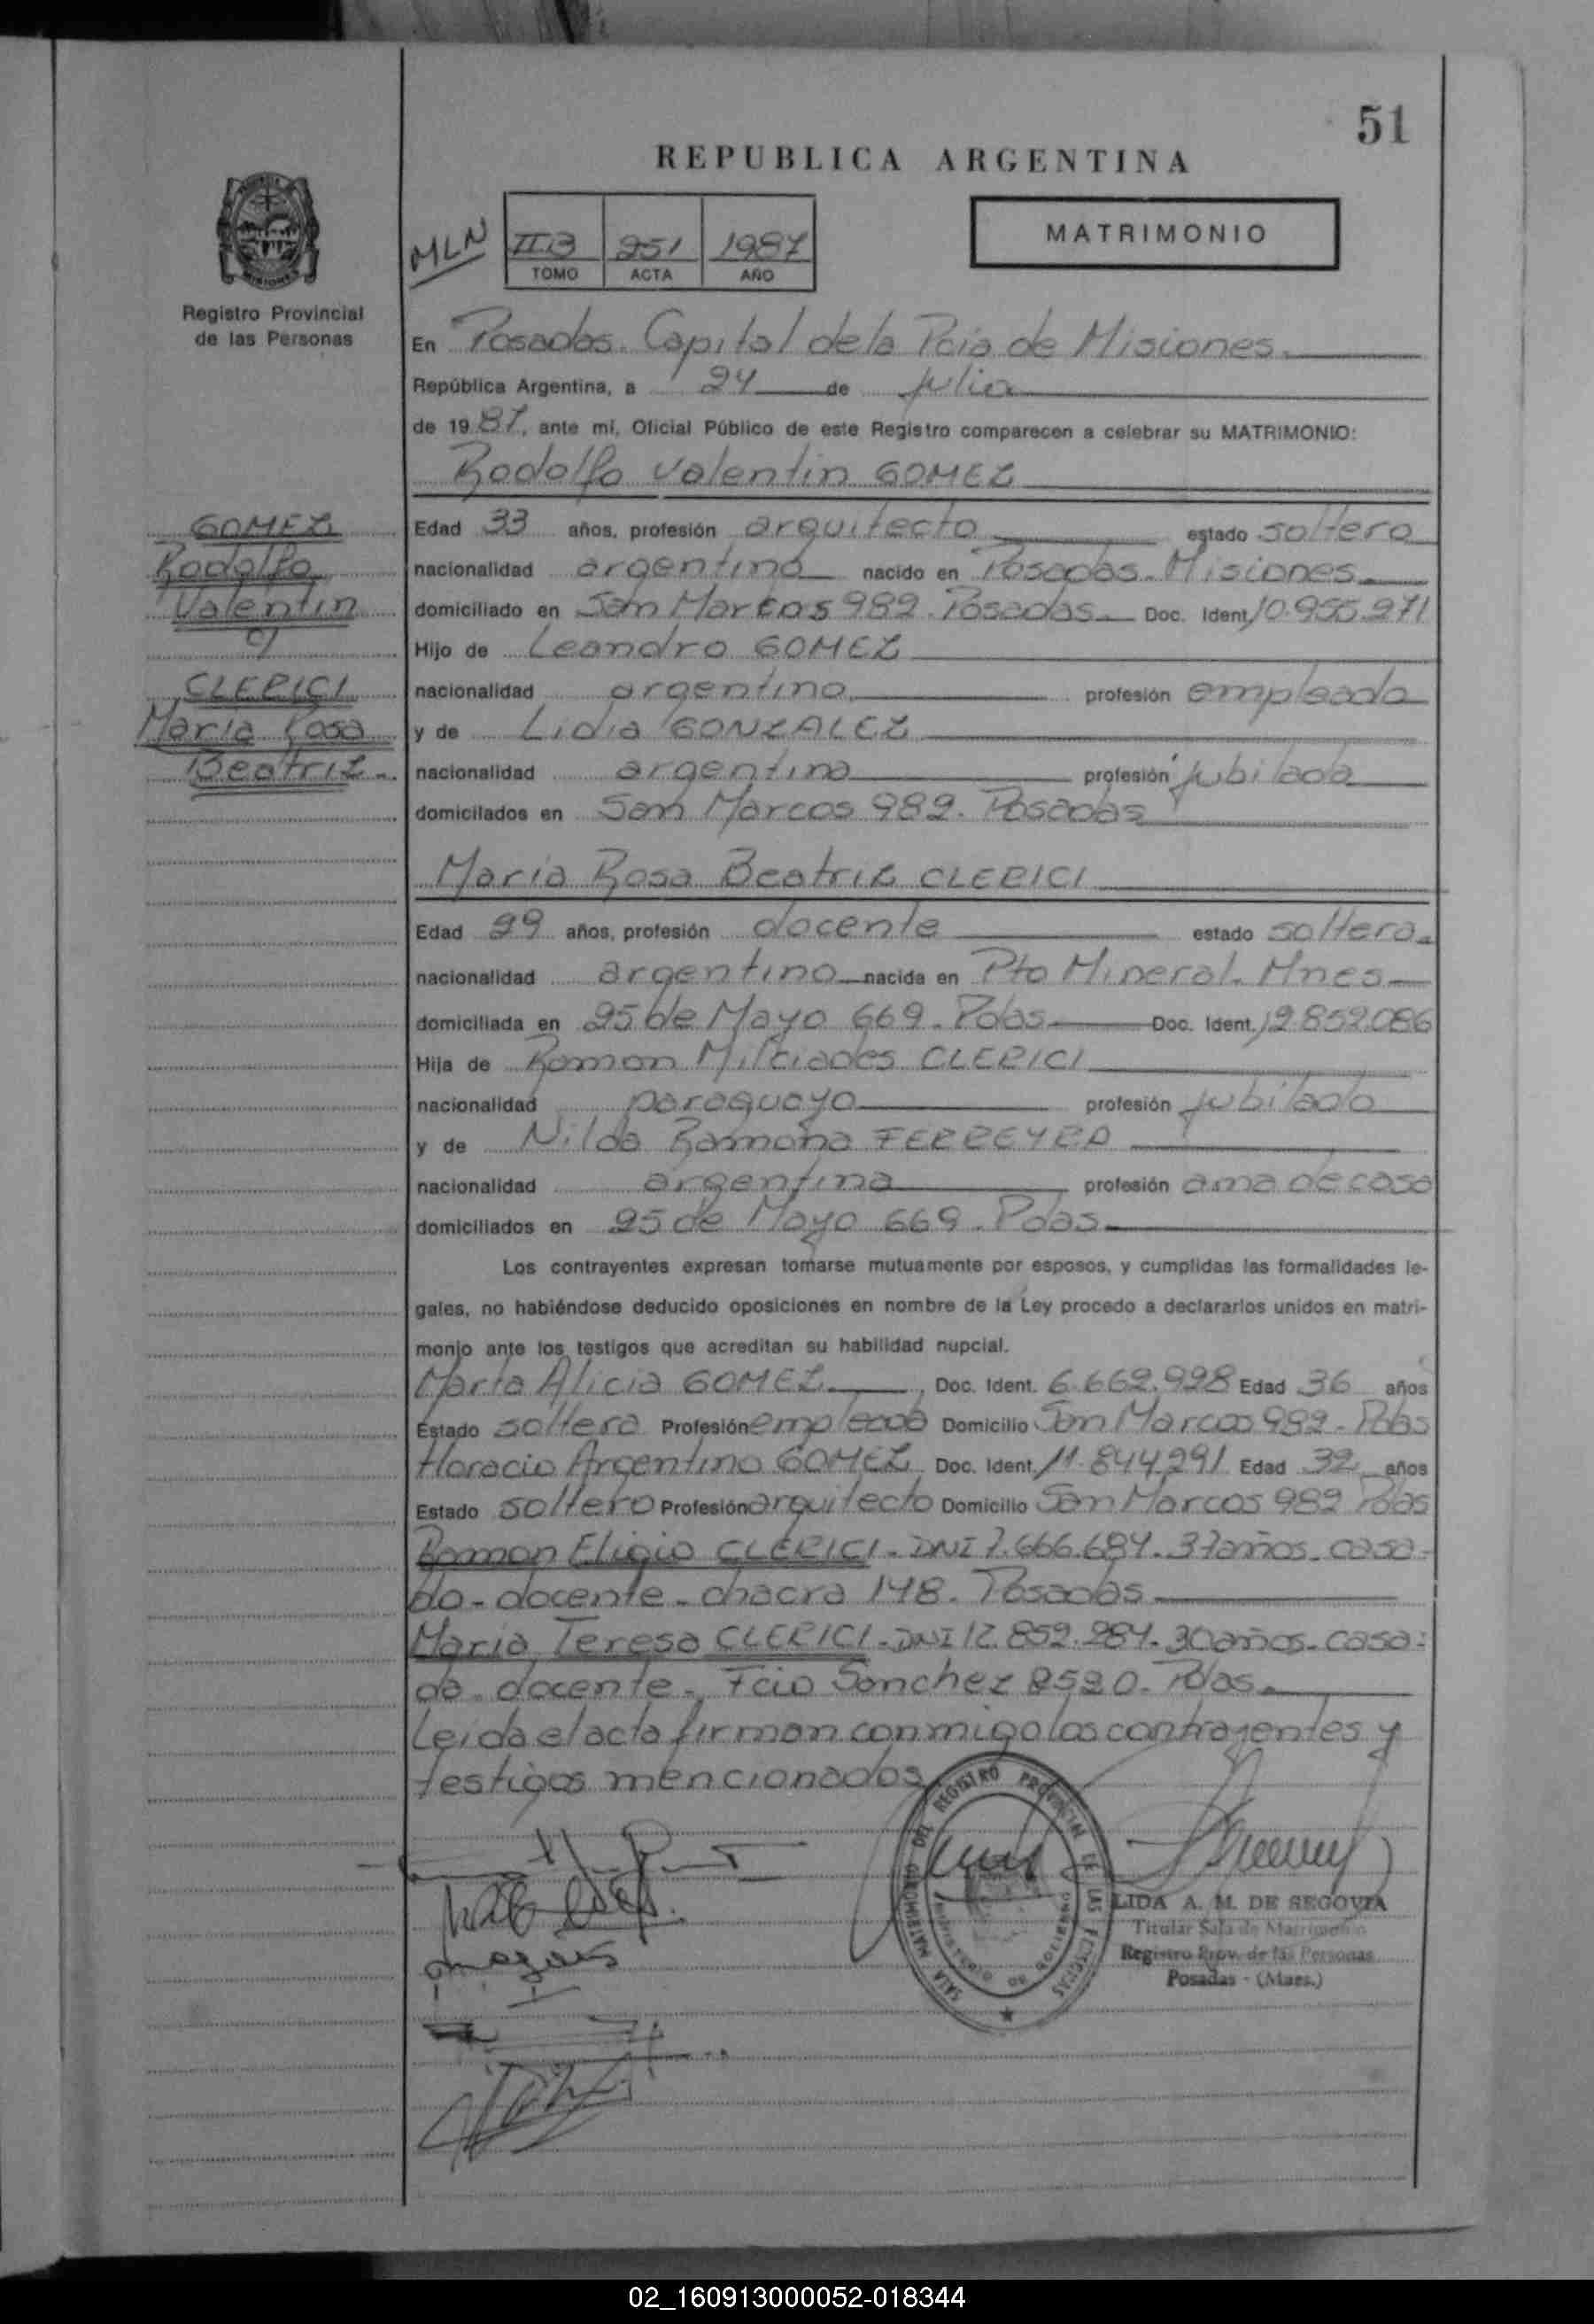 51
REPUBLICA ARGENTINA
MATRIMONIO
MLN
II.B 251 1987
TOMO ACTA AÑO
Registro Provincial
de las Personas
En Posadas. Capital de la Pcia de Misiones.
República Argentina, a 24 de julio
de 1987, ante mí, Oficial Público de este Registro comparecen a celebrar su MATRIMONIO:
Rodolfo Valentin GOMEZ
GOMEZ
Rodolfo
Valentin
CLERICI
Maria Rosa
Beatriz.
Edad 33 años, profesión arquitecto estado soltero
nacionalidad argentina nacido en Posadas. Misiones.
domiciliado en San Marcos 982. Posadas Doc. Ident. 10.955.271
Hijo de Leandro GOMEZ
nacionalidad argentina profesión empleado
y de Lidia GONZALEZ
nacionalidad argentina profesión jubilada
domicilados en San Marcos 982. Posadas
Maria Rosa Beatriz CLERICI
Edad 29 años, profesión docente estado soltera.
nacionalidad argentina nacida en Pto Mineral. Mnes
domiciliada en 25 de Mayo 669. Pdas Doc. Ident. 12.852.086
Hija de Ramon Milciades CLERICI
nacionalidad paraguaya profesión jubilado
y de Nilda Ramona FERREYRA
nacionalidad argentina profesión ama de casa
domiciliados en 25 de Mayo 669. Pdas
Los contrayentes expresan tomarse mutuamente por esposos, y cumplidas las formalidades le-
gales, no habiéndose deducido oposiciones en nombre de la Ley procedo a declararlos unidos en matri-
monio ante los testigos que acreditan su habilidad nupcial.
Marta Alicia GOMEZ Doc. Ident. 6.662.928 Edad 36 años
Estado soltera Profesión empleada Domicilio San Marcos 982. Pdas
Horacio Argentino GOMEZ Doc. Ident. 11.844.291 Edad 32 años
Estado soltero Profesión arquitecto Domicilio San Marcos 982 Pdas
Ramon Eligio CLERICI. DNI 7.666.684. 37 años. casa-
do. docente. chacra 148. Posadas
Maria Teresa CLERICI. DNI 12.852.284. 30 años. casa-
da. docente. Fcio Sanchez 2520. Pdas.
Leida el acta firman conmigo los contrayentes y
testigos mencionados
SALA MATRIMONIO DEL REGISTRO PROVINCIAL DE LAS PERSONAS
LIDA A. M. DE SEGOVIA
Titular Sala de Matrimonio
Registro Prov. de las Personas
Posadas - (Mnes.)
02_160913000052-018344